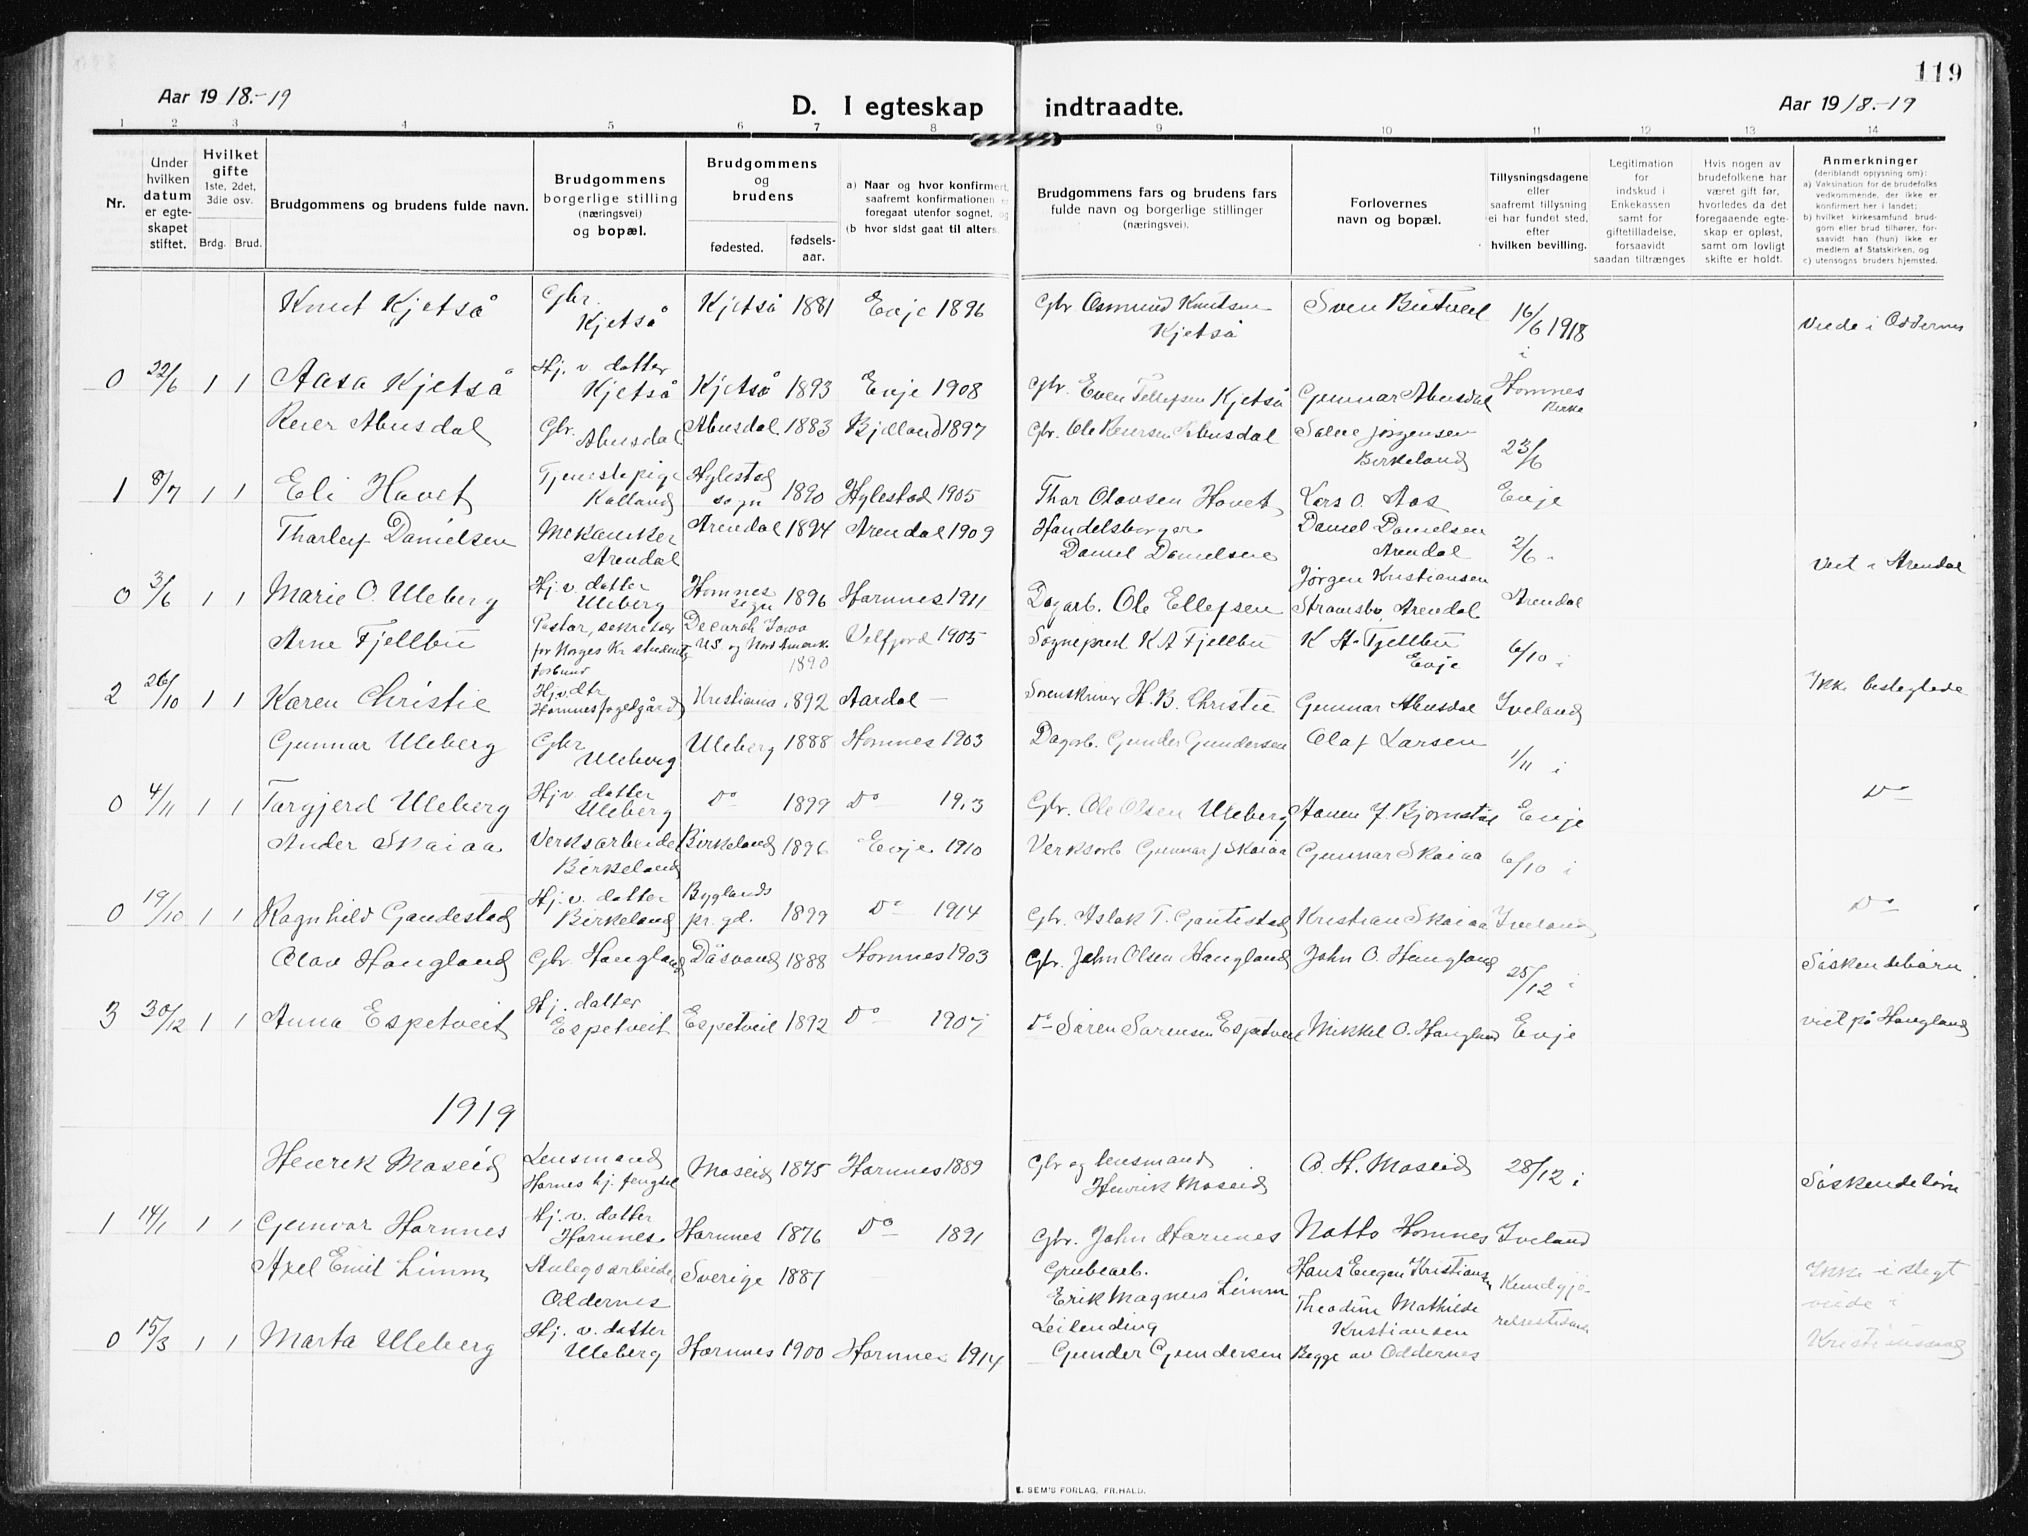 119
Aar 1918.-19
D. I egteskap indtraadte.
Aar 1918.-19
1 2 3 4 5 6 7 8 9 10 11 12 13 14
Nr.
Under hvilken datum er egteskapet stiftet.
Hvilket gifte 1ste, 2det, 3die osv.
Brdg. Brud.
Brudgommens og brudens fulde navn.
Brudgommens borgerlige stilling (næringsvei) og bopæl.
Brudgommens og brudens
fødested. fødselsaar.
a) Naar og hvor konfirmert, saafremt konfirmationen er foregaat utenfor sognet, og
(b hvor sidst gaat til alters.
Brudgommens fars og brudens fars fulde navn og borgerlige stillinger (næringsvei).
Forlovernes navn og bopæl.
Tillysningsdagene eller saafremt tillysning ei har fundet sted, efter hvilken bevilling.
Legitimation for indskud i Enkekassen samt for giftetilladelse, forsaavidt saadan tiltrænges
Hvis nogen av brudefolkene har været gift før, hvorledes da det foregaaende egteskap er opløst, samt om lovligt skifte er holdt.
Anmerkninger (deriblandt oplysning om):
a) Vaksination for de brudefolks vedkommende, der ikke er konfirmert her i landet;
b) hvilket kirkesamfund brudgom eller brud tilhører, forsaavidt han (hun) ikke er medlem af Statskirken, og
c) utensogns bruders hjemsted.
Knut Kjetså Gbr. Kjetså Kjetså 1881 Evje 1896 Gbr Osmund Knutsen Kjetså Sven 16/6 1918 Viede i Oddernes
0 22/6 1 1 Aasa Kjetså Hj. v. datter Kjetså Kjetså 1893 Evje 1908 Gbr. Even Tellefsen Kjetså Gunnar Abusdal i Hornnes kirke
Reier Abusdal Gbr. Abusdal Abusdal 1883 Bjelland 1897 Gbr. Ole Reiersen Abusdal Salve Jørgensen Birkeland 23/6
1 8/7 1 1 Eli Havet Tjenestepige Kalland Hylestad sogn 1890 Hylestad 1905 Thor Olavsen Hovet Lars O. Aas Evje
Tharley Danielsen Mekaniker Arendal Arendal 1894 Arendal 1909 Handelsborger Daniel Danielsen Daniel Danielsen Arendal 2/6 Viet i Arendal
0 3/6 1 1 Marie O. Uleberg Hj. v. datter Uleberg Hornnes sogn 1896 Hornnes 1911 Dagarb. Ole Ellefsen Jørgen Kristiansen Strømsbo, Arendal Arendal
Arne Fjellbu Pastor, sekretær for Norges Kr. student forbund Decorah Iowa US. og Nord Amerik. 1890 Velfjord 1905 Sogneprest K A Fjellbu K A Fjellbu Evje 6/10 i
2 26/10 1 1 Karen Christie Hj. v. dtr Hornnes fogedgård Kristiania 1892 Aardal — Sorenskriver H. B. Christie Gunnar Abusdal Iveland Ikke beslegtede
Gunnar Uleberg Gbr Uleberg Uleberg 1888 Hornnes 1903 Dagarb. Gunder Gundersen Olaf Larsen 1/11 i
0 4/11 1 1 Targjerd Uleberg Hj. v. datter Uleberg Do 1899 Do 1913 Gbr. Ole Olsen Uleberg Aanen J. Bjørnstøl Evje Do
Ander Skaiaa Verksarbeider Birkeland Birkeland 1896 Evje 1910 Verksarb Gunnar J Skaiaa Gunnar Skaiaa 6/10 i
0 19/10 1 1 Ragnhild Gandestad Hj. v. datter Birkeland Byglands pr. gd. 1899 Do 1914 Gbr. Aslak T. Gautestad Kristian Skaiaa Iveland Do
Olav Haugland Gbr. Haugland Dåsvand 1888 Hornnes 1903 Gbr. John Olsen Haugland John O. Haugland 25/12 i Søskendebørn.
3 30/12 1 1 Anna Espetveit Hj. datter Espetveit Espetveit 1892 Do 1907 Do Søren Sørensen Espetveit Mikkel O. Haugland Evje viet på Haugland
1919
Henrik Moseid Lensmand Hornes hj. fengsel Moseid 1875 Hornnes 1889 Gbr og lensmand Henrik Moseid O. H. Moseid 28/12 i Søskendebørn
1 14/1 1 1 Gunvor Hornnes Hj. v. datter Hornnes Hornnes 1876 Do 1891 Gbr. John Hornnes Notto Hornnes Iveland
Axel Emil Limm Anlegsarbeider Oddernes Sverige 1887 Grubearb. Erik Magnus Limm Hans Eugen Kristiansen Theodine Mathilde Kristiansen Kundgjørelsestid Ikke i slegt viede i Kristianssand
0 15/3 1 1 Marta Uleberg Hj. v. datter Uleberg Hornnes 1900 Hornnes 1914 Leilending Gunder Gundersen Begge av Oddernes
E. SEM'S FORLAG, FR.HALD.